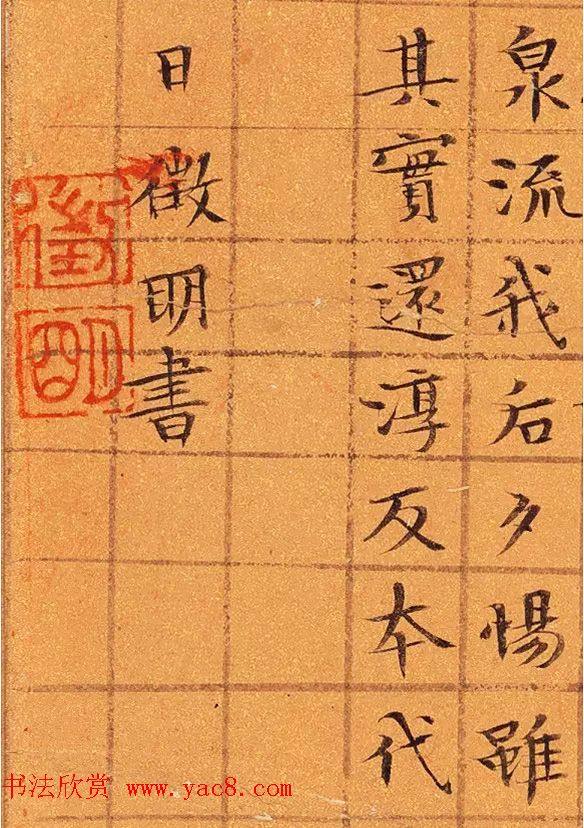 泉流我后夕惕雖
其實還淳反本代
日徵明書
徵明
书法欣赏 www.yac8.com